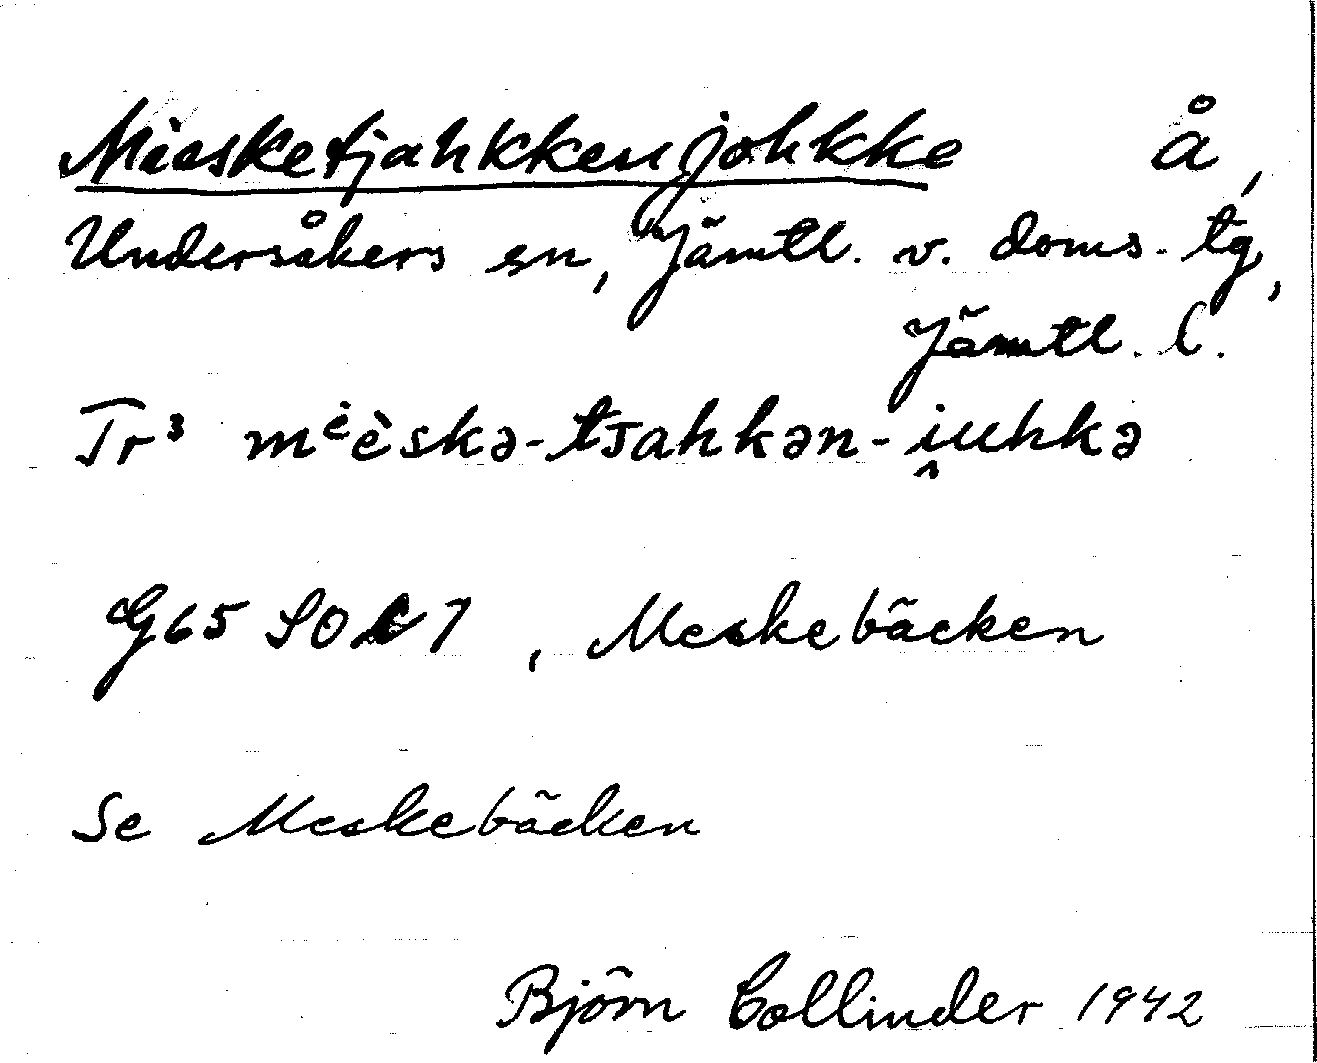 Miesketjahkkenjohkke Å,
Undersåkers sn, Jämtl. v. doms. tg,
Jämtl. l.
Tr³ mⁱèskə-tsahkən-i̭uhkə
G65 SO c 7, Meskebäcken
Se Meskebäcken
Björn Collinder 1942